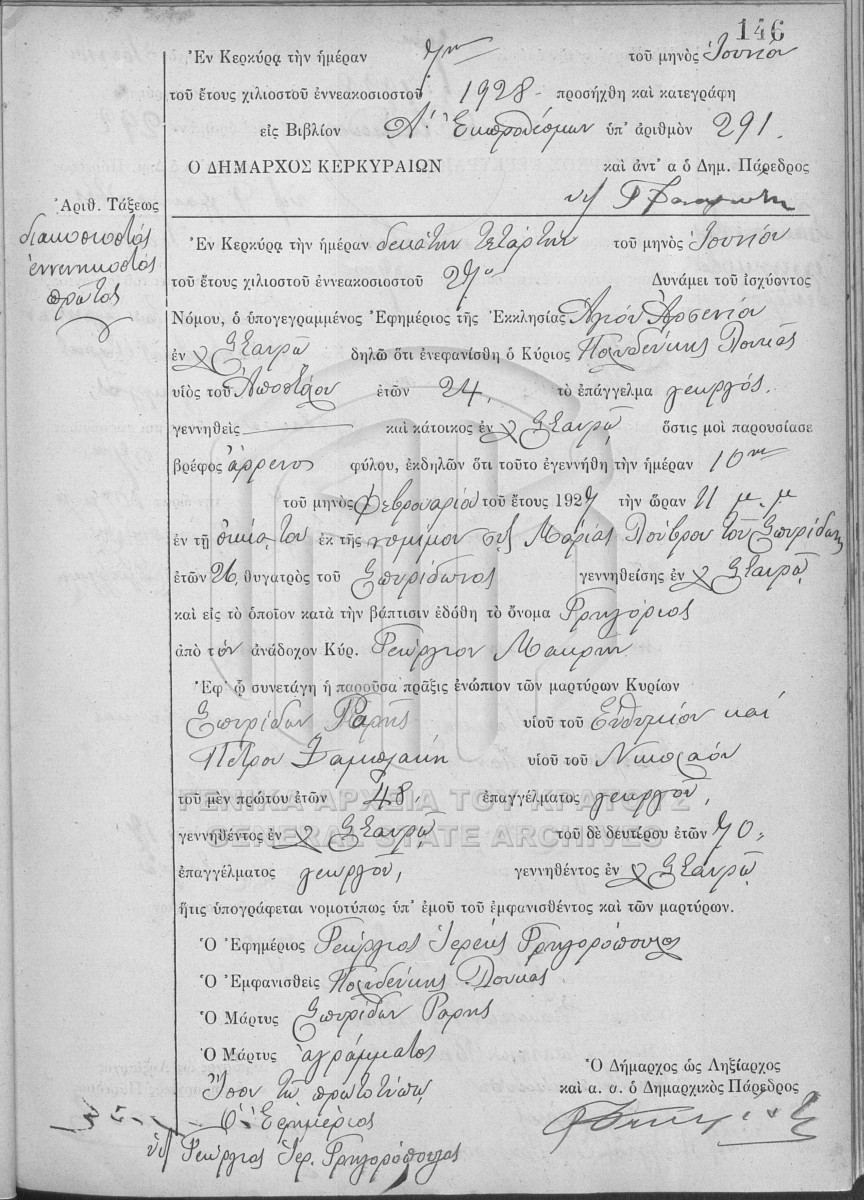 146
Ἐν Κερκύρᾳ τὴν ἡμέραν 7ην τοῦ μηνὸς Ἰουνίου
τοῦ ἔτους χιλιοστοῦ ἐννεακοσιοστοῦ 1928 προσήχθη καὶ κατεγράφη
εἰς Βιβλίον Α΄. Ἐκπροθέσμων ὑπ' ἀριθμὸν 291.
Ο ΔΗΜΑΡΧΟΣ ΚΕΡΚΥΡΑΙΩΝ καὶ ἀντ' α ὁ Δημ. Πάρεδρος
Ἀριθ. Τάξεως
διακοσιοστός
ἐννενηκοστός
πρῶτος
Ἐν Κερκύρᾳ τὴν ἡμέραν δεκάτην τετάρτην τοῦ μηνὸς Ἰουνίου
τοῦ ἔτους χιλιοστοῦ ἐννεακοσιοστοῦ 27ου Δυνάμει τοῦ ἰσχύοντος
Νόμου, ὁ ὑπογεγραμμένος Ἐφημέριος τῆς Ἐκκλησίας Ἁγίου Ἀρσενίου
ἐν χ Σταυρῷ δηλῶ ὅτι ἐνεφανίσθη ὁ Κύριος Πολυδεύκης Λουκᾶς
υἱὸς τοῦ Ἀποστόλου ἐτῶν 24, τὸ ἐπάγγελμα γεωργός.
γεννηθεὶς καὶ κάτοικος ἐν χ Σταυρῷ ὅστις μοὶ παρουσίασε
βρέφος ἄρρενος φύλου, ἐκδηλῶν ὅτι τοῦτο ἐγεννήθη τὴν ἡμέραν 10ην
τοῦ μηνὸς Φεβρουαρίου τοῦ ἔτους 1927 τὴν ὥραν 11 μ.μ
ἐν τῇ οἰκίᾳ του ἐκ τῆς νομίμου συζ Μαρίας Λούβρου τοῦ Σπυρίδων
ἐτῶν 26, θυγατρὸς τοῦ Σπυρίδωνος γεννηθείσης ἐν χ Σταυρῷ
καὶ εἰς τὸ ὁποῖον κατὰ τὴν βάπτισιν ἐδόθη τὸ ὄνομα Γρηγόριος
ἀπὸ τὸν ἀνάδοχον Κύρ. Γεώργιον Μακρῆν
Ἐφ' ᾧ συνετάγη ἡ παροῦσα πρᾶξις ἐνώπιον τῶν μαρτύρων Κυρίων
Σπυρίδων Ραρῆς υἱοῦ τοῦ Εὐθυμίου καί
Πέτρου υἱοῦ τοῦ Νικολάου
τοῦ μὲν πρώτου ἐτῶν 48, ἐπαγγέλματος γεωργοῦ,
ΓΕΝΙΚΑ ΑΡΧΕΙΑ ΤΟΥ ΚΡΑΤΟΥΣ
γεννηθέντος ἐν χ Σταυρῷ τοῦ δὲ δευτέρου ἐτῶν 70,
GENERAL STATE ARCHIVES
ἐπαγγέλματος γεωργοῦ, γεννηθέντος ἐν χ Σταυρῷ
ἥτις ὑπογράφεται νομοτύπως ὑπ' ἐμοῦ τοῦ ἐμφανισθέντος καὶ τῶν μαρτύρων.
Ὁ Ἐφημέριος Γεώργιος Ἱερεὺς Γρηγορόπουλος
Ὁ Ἐμφανισθεὶς Πολυδεύκης Λουκάς
Ὁ Μάρτυς Σπυρίδων Ραρης
Ὁ Μάρτυς ἀγράμματος
Ἴσον τῷ πρωτοτύπῳ
Ὁ Ἐφημέριος
Γεώργιος Ἱερ. Γρηγορόπουλος
Ὁ Δήμαρχος ὡς Ληξίαρχος
καὶ α. α. ὁ Δημαρχικὸς Πάρεδρος